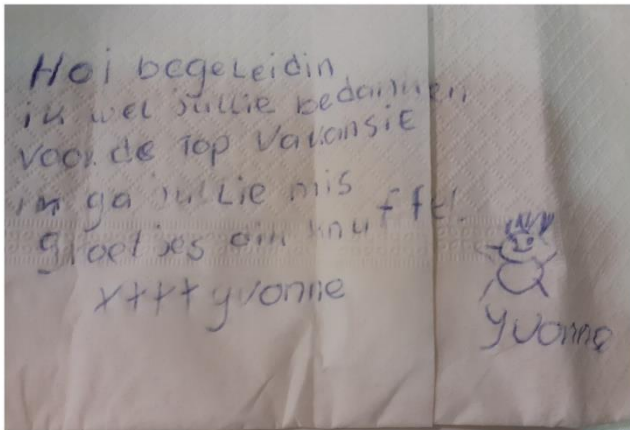 Hoi begeleidin
ik wel jullie bedanken
voor de Top Vakansie
ik ga jullie mis
groetjes ein knuffel.
x+++ yvonne
yvonne